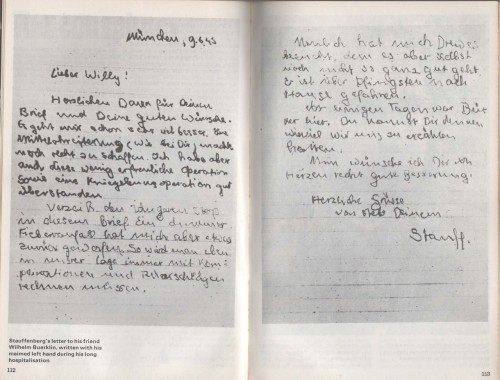 München, 9.6.43
Lieber Willy!
Herzlichen Dank für Deinen
Brief und Deine guten Wünsche.
Es geht mir schon sehr viel besser. Eine
Mittelohreiterung (wie bei Dir) machte
noch recht zu schaffen. Ich habe aber
auch diese wenig erfreuliche Operation
sowie eine Kniegelenkoperation gut
überstanden.
Verzeih den langen Stop
in diesem Brief. Ein dummer
Fieberanfall hat mich aber etwas
zurückgeworfen. So wird man eben
in unsrer Lage immer mit Kom-
plikationen und Rückschlägen
rechnen müssen.
Stauffenberg's letter to his friend
Wilhelm Buerklin, written with his
maimed left hand during his long
hospitalisation
112
Neulich hat mich Drewes
besucht, dem es aber selbst
noch nicht so ganz gut geht.
Er ist über Pfingsten nach
Hause gefahren.
Vor einigen Tagen war
hier. Du kannst Dir denken
wieviel wir uns zu erzählen
hatten.
Nun wünsche ich Dir von
Herzen recht gute Besserung.
Herzliche Grüsse
von Deinem
Stauff.
113